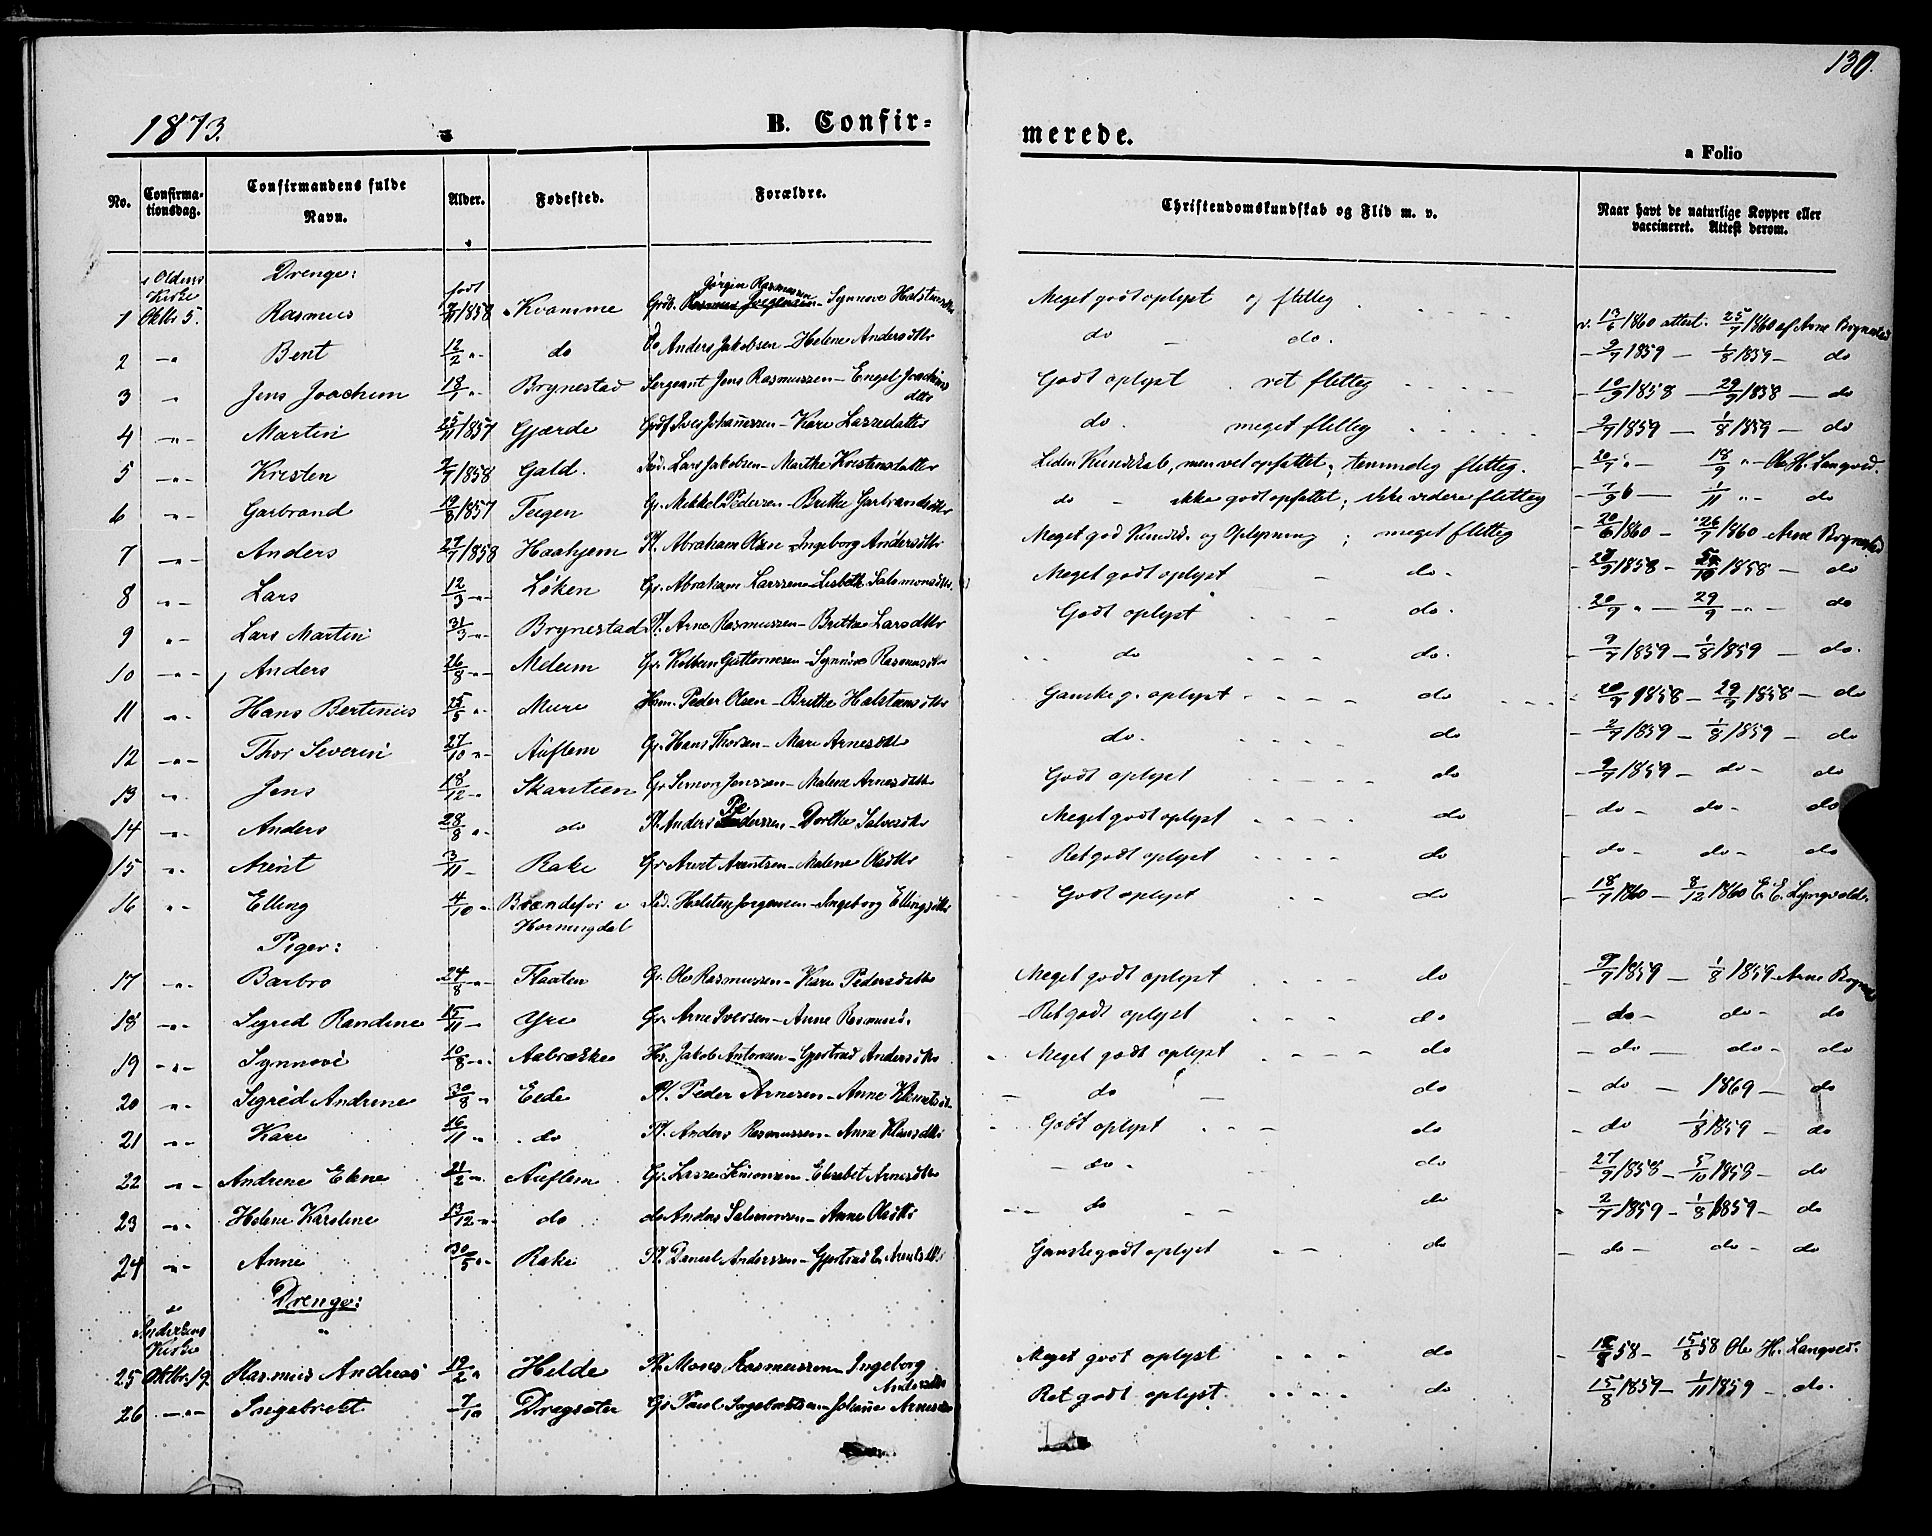 130.
1873. B. Confir= merede.
a Folio
No. Confirma-tionsdag. Confirmandens fulde Navn. Alder. Fødested. Forældre. Christendomskundskab og Flid m. v. Naar havt de naturlige Kopper eller vaccineret. Attest derom.
i Oldens Kirke Drenge: født Jørgen Rasmussen
1 Oktbr 5. Rasmus /1858 Kvamme Grdb. Rasmus Jørgensen - Synnøve Halstensdtr Meget godt oplyst og flittig v. 13/6 1860 attest. 25/7 1860 af Arne Brynestad
2 -"- Bent 12/2 " do Do Anders Jakobsen - Helene Andersdtr do - do. - 9/7 1859 - 1/8 1859 - do
3 " Jens Joachim 18/1 " Brynestad Sergeant Jens Rasmussen - Engel Joachims dtr Godt oplyst . ret flittig - 10/9 1858 - 29/9 1858 - do
4 -"- Martin 25/11 1857 Gjærde Iver Johannessen - Kari Lassedatter do. meget flittig - 9/7 1859 - 1/8 1859 - do
5 -"- Kristen /7 1858 Gald. Lars Jakobsen - Marthe Kristensdatter Liden Kundskab, men vel opfattet; temmelig flittig. - 20/7 " - 18/9 " - Ole H. Langved.
6 -"- Garbrand 19/8 1857 Teigen G. Mikkel Pedersen - Brithe Garbrandsdtr do - ikke godt opfattet; ikke videre flittig - 7/9 - 1/11 " - do
7 -"- Anders 27/7 1858 Haahjem Pl. Abraham Olsen - Ingeborg Andersdtr Meget god Kundsk. og Oplysning ; meget flittig - 20/6 1860 - 26/7 1860 - Arne Brynestad
8 -"- Lars 12/3 -"- Løken Gr. Abraham Larssen - Lisbeth Salomonsdtr. Meget godt oplyst - do. - 27/9 1858 - 5/10 1858 - do
9 "- Lars Martin 31/3 -"- Brynestad Pl. Arne Rasmussen - Brithe Larsdtr Godt oplyst do. 20/9 " - 29/9 -"- do
10 -"- Anders 26/8 " Melum Gr. Kolbein Guttormsen - Synnøve Rasmusdtr do do. - 9/7 1859 - 1/8 1859 - do.
11 -"- Hans Bertinus 25/5 " Mure Hsm. Peder Olsen - Brithe Halstensdtr Ganske g. oplyst do - 20/9 1858 - 29/9 1858 - do
12 -"- Thor Severin 27/10 " Auflem Gr. Hans Thorsen - Mari Arnesdtr do. do - 2/7 1859 - 1/8 1859 - do
13 -"- Jens 18/12 " Skarsteen Gr Simon Jenssen - Malene Arnesdtr Godt oplyst do - 9/7 1859 - do - do
14 -"- Anders 28/8 " do Pl. Anders Pederssen - Dorthe Salvesdtr Meget godt oplyst do - do - do - do
15 -"- Arent 3/11 - Rake Gr Arent Arentsen - Malene Olsdtr Ret godt oplyst do - do - do - do
16 -"- Elling 4/10 " Brændefor i Horningdal Halsten Jørgensen - Ingeborg Ellingsdtr Godt oplyst do - 18/7 1860 - 8/12 1860 E. E. Lyngvold.
Piger:
17 -"- Barbro 24/8 -"- Flaaten Gr. Ole Rasmussen - Kari Pedersdatter Meget godt oplyst do - 9/7 1859 - 1/8 1859 - Arne Brynestad
18 -"- Sigrid Randine 15/11 - Yri Gr. Arne Iversen - Anne Rasmusd. Ret godt oplyst do - do - do - do
19 -"- Synnøve 10/8 -"- Aabrække Hs. Jakob Antonsen - Gjertrud Andersdtr Meget godt oplyst do - do - do - do
20 -"- Sigrid Andrine 30/8 " Eide Pl. Peder Arnesen - Anne do - do - do - 1869 - do
21 -"- Kari 16/11 " do Pl. Anders Rasmussen - Anne Klausdtr Godt oplyst do - do 1/8 1859 - do
22 -"- Andrine Eline 21/2 " Auflem Gr. Lasse Simonsen - Elisabet Arnesdtr - do - do - 27/9 1858 - 5/10 1858 - do
23 -"- Helene Karoline 13/12 " do do Anders Salomonsen - Anne Olsdtr do do 2/7 1859 - 1/8 1859 - do
24 -"- Anne 30/5 " Rake Pl. Daniel Anderssen - Gjertrud Arentsdtr Ganske godt oplyst do - do - do - do
Drenge:
i Indvikens Kirke
25 Oktbr. 19. Rasmus Andreas 19/2 " Hilde Pl. Moses Rasmussen - Ingeborg Andersdtr Meget godt oplyst do - 58 - 15/8 58 Ole H. Langved.
26 -"- Ingebrekt 7/10 Dragsæter Gr Paul Ingebrektsen - Johanne Arnesdtr Ret godt oplyst. do 15/8 1859 - 1/11 1859 - do.